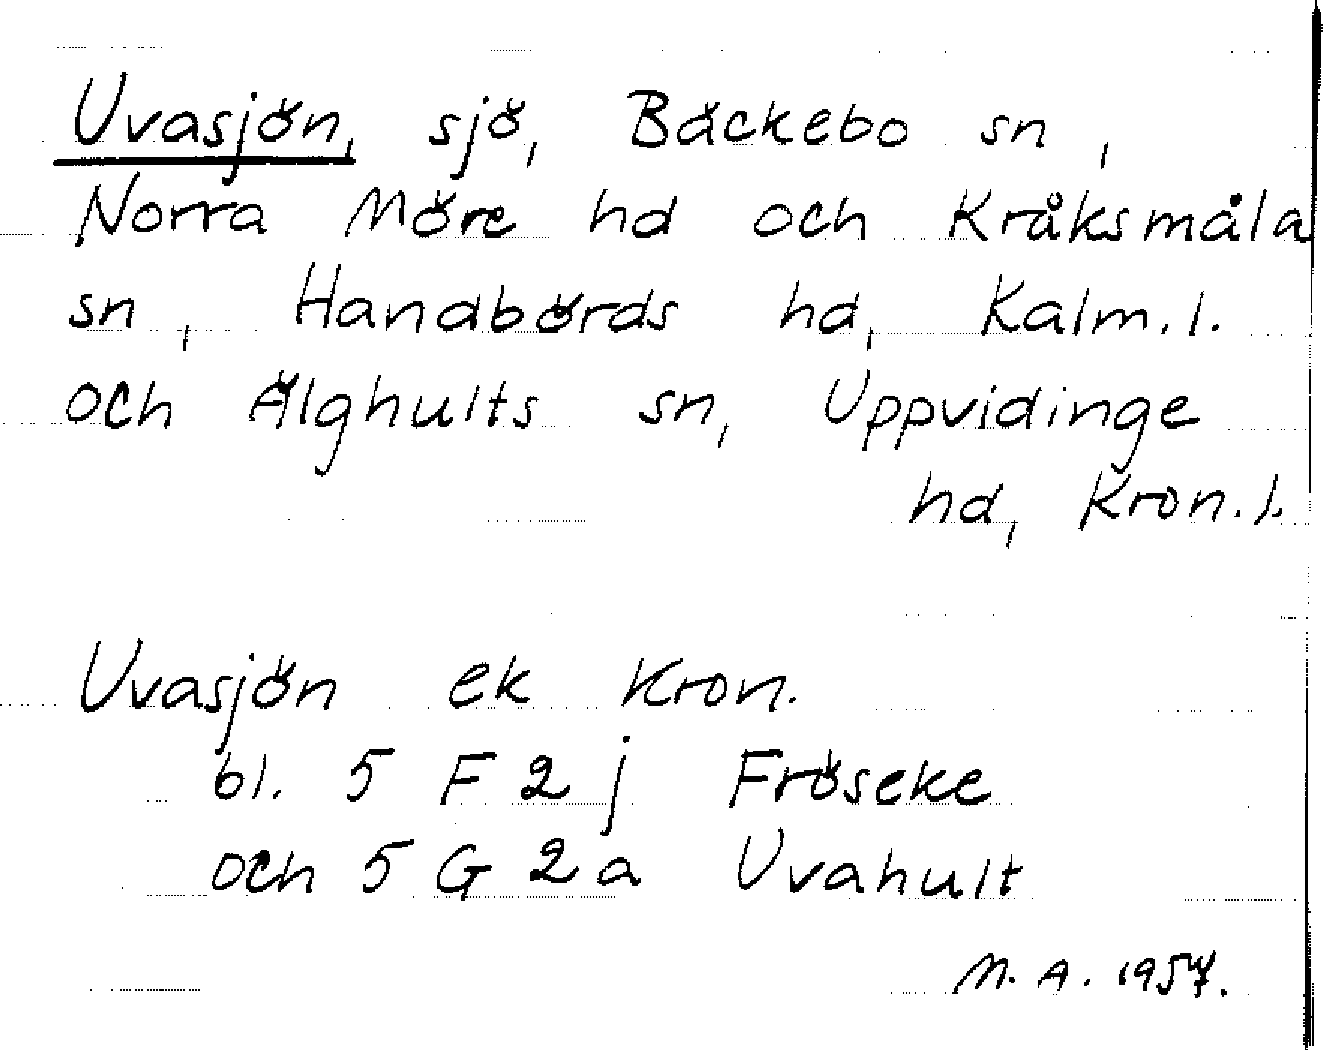 Uvasjön, sjö, Bäckebo sn,
Norra Möre hd och Kråksmåla
sn, Handbörds hd, Kalm.l.
och Älghults sn, Uppvidinge
hd, Kron.l.
Uvasjön ek Kron.
bl. 5 F 2 j Fröseke
och 5 G 2 a Uvahult
M. A. 1957.